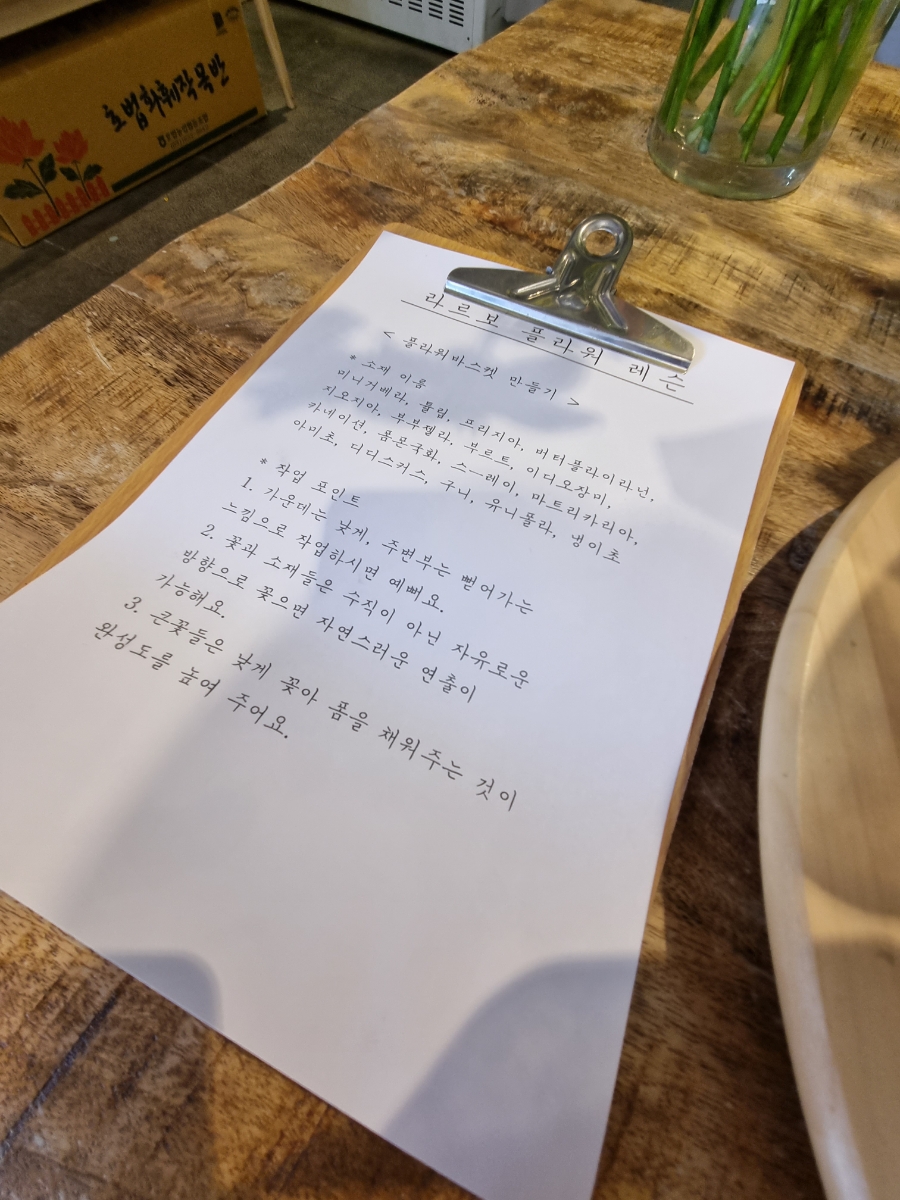 호법화훼작목반
라르보 플라워 레슨
< 플라워바스켓 만들기 >
* 소재 이름
미니거베라, 튤립, 프리지아, 버터플라이라넌,
지오지아, 부부젤라, 부르트, 이디오장미,
카네이션, 폼폰국화, 스프레이, 마트리카리아,
아미초, 디디스커스, 구니, 유니폴라, 냉이초
* 작업 포인트
1. 가운데는 낮게, 주변부는 뻗어가는
느낌으로 작업하시면 예뻐요.
2. 꽃과 소재들은 수직이 아닌 자유로운
방향으로 꽂으면 자연스러운 연출이
가능해요.
3. 큰꽃들은 낮게 꽂아 폼을 채워주는 것이
완성도를 높여 주어요.